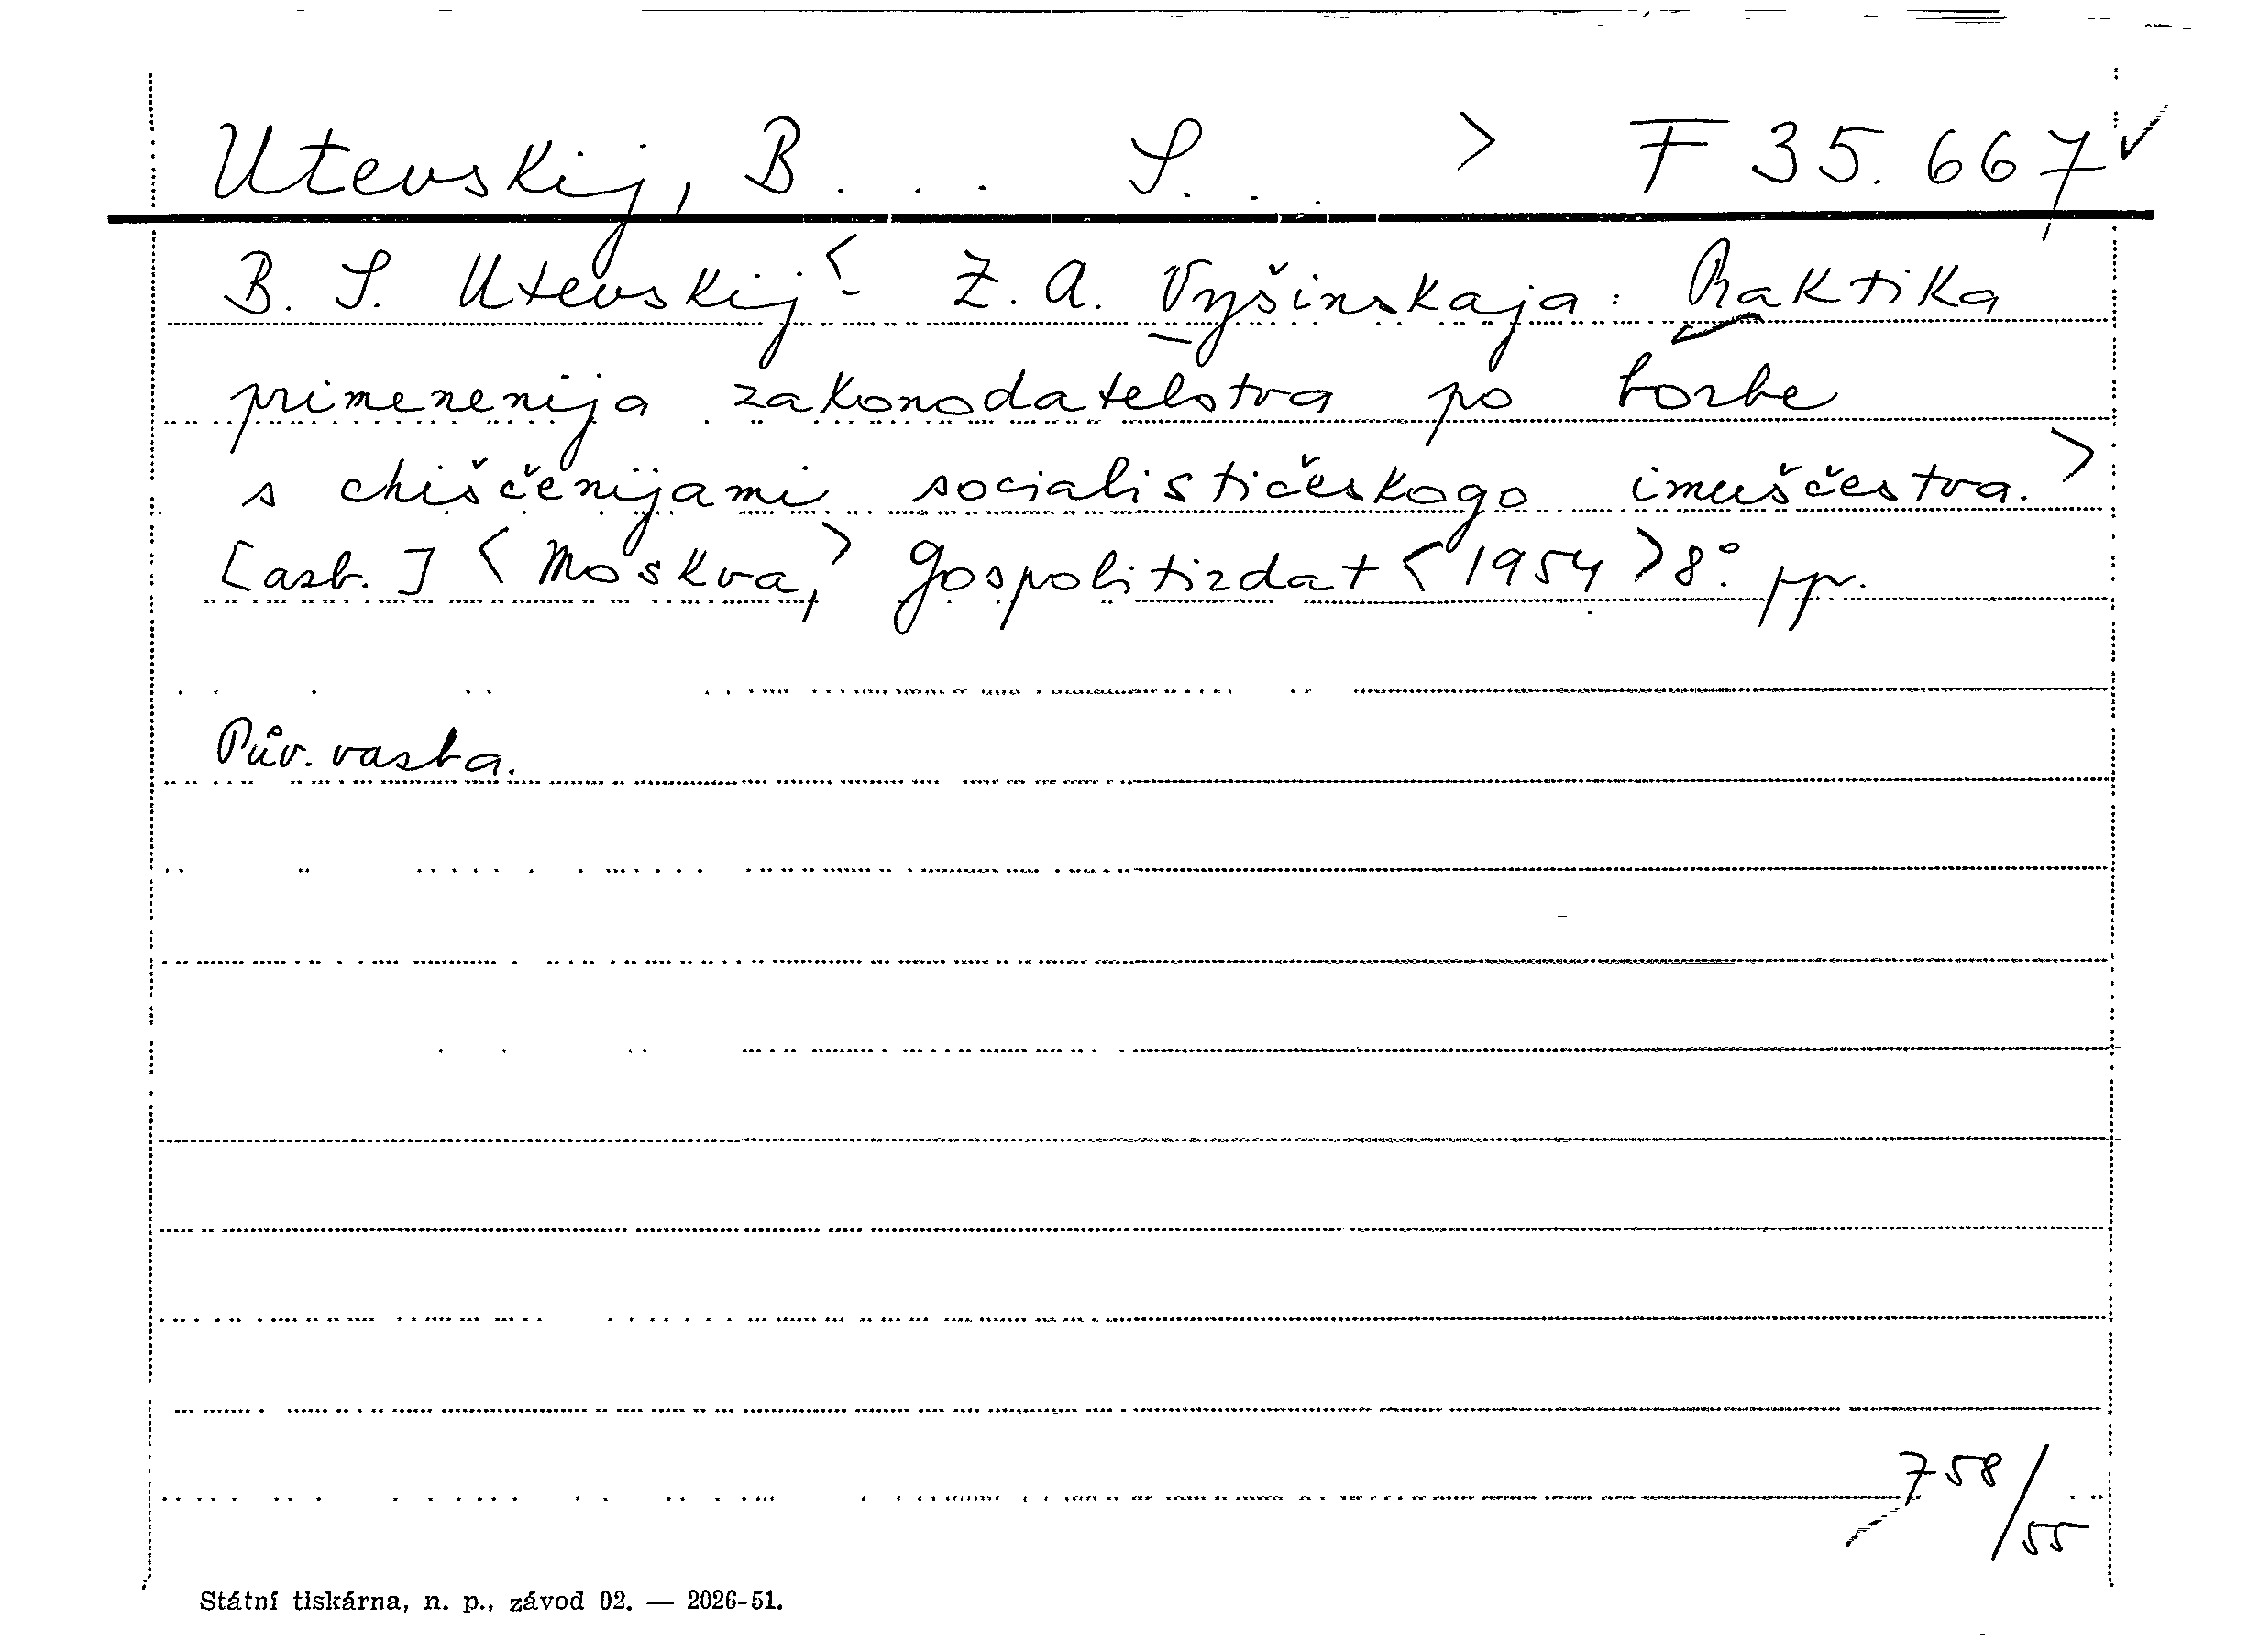 Utevskij, B . . . S. . . > F 35.667 ✓
B. S. Utevskij < - Z. A. Vyšinskaja : Praktika
primenenija zakonodatelstva po borbe
s chiščenijami socialističeskogo imuščestva. >
[azb.] < Moskva, > Gospolitizdat < 1954 > 8°. pp.
Pův. vazba.
758/55
Státní tiskárna, n. p., závod 02. — 2026-51.